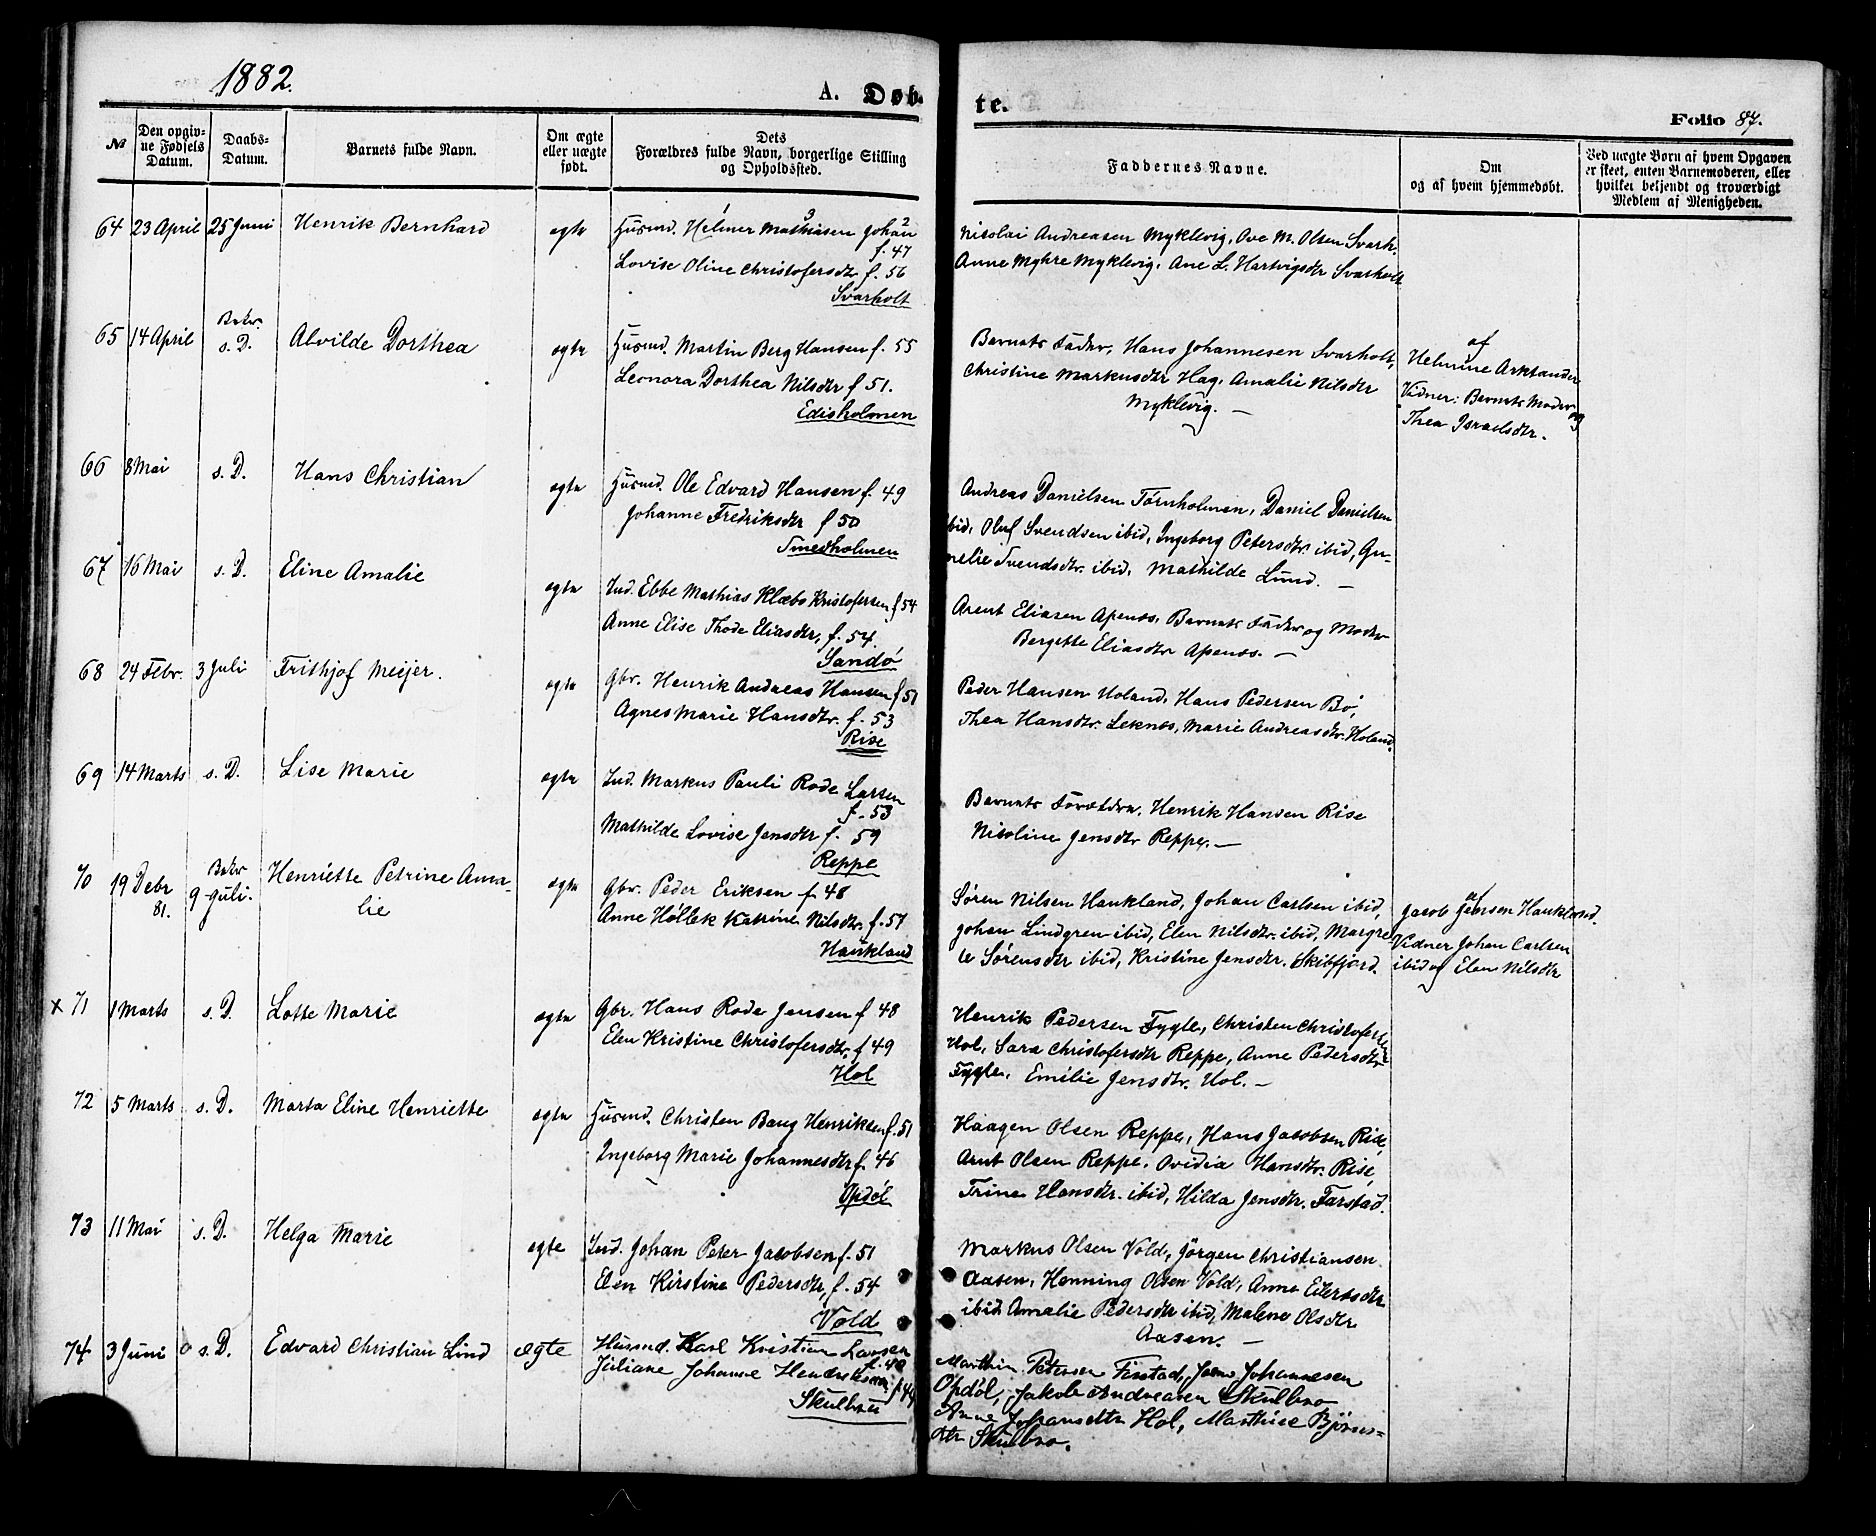 1882.
A. Døb-
te.
Folio 87.
№
Den opgiv-
ne Fødsels
Datum.
Daabs-
Datum.
Barnets fulde Navn.
Om ægte
eller uægte
født.
Dets
Forældres fulde Navn, borgerlige Stilling
og Opholdssted.
Faddernes Navne.
Om
og af hvem hjemmedøbt.
Ved uægte Børn af hvem Opgaven
er skeet, enten Barnemoderen, eller
hvilket beljendt og troværdigt
Medlem af Menigheden.
64 23 April 25 Juni Henrik Bernhard ægte Husmd. Helmer Mathiasen Johan
f. 47
Lovise Oline Christofersdtr f. 56
Svarholt
Nikolai Andreasen Myklevig, Ove M. Olsen Svarh.
Anne Myhre Myklevig, Ane L. Hartvigsdtr Svarholt
65 14 April Bekr. s. D. Alvilde Dorthea ægte Husmd. Martin Berg Hansen f. 55
Leonora Dorthea Nilsdtr f 51.
Edisholmen
Barnets Fader, Hans Johannesen Svarholt,
Christine Markusdtr Hag, Amalie Nilsdtr
Myklevig. —
af
Helmine Arktander
Vidner: Barnets Moder og
Thea Israelsdtr.
66 8 Mai s. D. Hans Christian ægte Husmd. Ole Edvard Hansen f. 49
Johanne Fredriksdtr f 50
Smedholmen
Andreas Danielsen Tørnholmen, Daniel Danielsen
ibid, Oluf Svendsen ibid, Ingeborg Petersdtr. ibid, Gu-
nelie Svendsdtr. ibid, Mathilde Lund. —
67 16 Mai s. D. Eline Amalie ægte Ind. Ebbe Mathias Klæbo Kristofersen f 54
Anne Elise Thode Eliasdtr, f. 54.
Sandø
Arent Eliasen Apenes, Barnets Fader og Moder
Bergette Eliasdtr Apenes. —
68 24 Febr. 3 Juli Frithjof Meijer. ægte Gbr. Henrik Andreas Hansen f 51
Agnes Marie Hansdtr. f. 53
Rise
Peder Hansen Holand, Hans Pedersen Bø,
Thea Hansdtr. Leknes, Marie Andreasdtr. Holand.
69 14 Marts s. D. Lise Marie ægte Ind. Markus Pauli Rode Larsen
f. 53
Mathilde Lovise Jensdtr f. 59
Reppe
Barnets Forældre, Henrik Hansen Rise
Nikoline Jensdtr Reppe. —
70 19 Debr 81. Bekr 9 Juli. Henriette Petrine Ama-
lie
ægte Gbr. Peder Eriksen f. 48
Anne Høllek Katrine Nilsdtr. f. 51
Haukland
Søren Nilsen Haukland, Johan Carlsen ibid,
Johan Lindgren ibid, Elen Nilsdtr. ibid, Margre-
te Sørensdtr ibid, Kristine Jensdtr. Skibfjord.
af
Jacob Jensen Haukland.
Vidner Johan Carlsen
ibid og Elen Nilsdtr
x 71 1 Marts s. D. Lotte Marie ægte Gbr. Hans Rode Jensen f 48
Elen Kristine Christofersdtr. f 49
Hol
Henrik Pedersen Fygle, Christen Christofersen
Hol, Sara Christofersdtr Reppe, Anne Pedersdtr
Fygle. Emilie Jensdtr. Hol. —
72 5 Marts s. D. Marta Eline Henriette ægte Husmd. Christen Bang Henriksen f. 51
Ingeborg Marie Johannesdtr f. 46
Opdøl
Haagen Olsen Reppe, Hans Jacobsen Rise,
Arnt Olsen Reppe, Ovidia Hansdtr. Rise,
Trine Hansdtr. ibid, Hilda Jensdtr. Farstad.
73 11 Mai s. D. Helga Marie ægte Ind. Johan Peter Jacobsen f. 51
Elen Kirstine Pedersdtr, f. 54
Vold
Markus Olsen Vold, Jörgen Christiansen
Aasen, Henning Olsen Vold, Anne Eilertsdtr
ibid Amalie Pedersdtr ibid, Malene Olsdtr
Aasen. —
74 3 Juni s. D. Edvard Christian Lind ægte Husmd. Karl Kristian Larsen
f. 40
Juliane Johanne Hendriksen f 44
Skulbru
Marthin Petersen Finstad, Jens Johannesen
Opdöl, Jakob Andreasen Skulbro
Anne Johansdtr Hol, Marthise Björns-
dtr Skulbro.